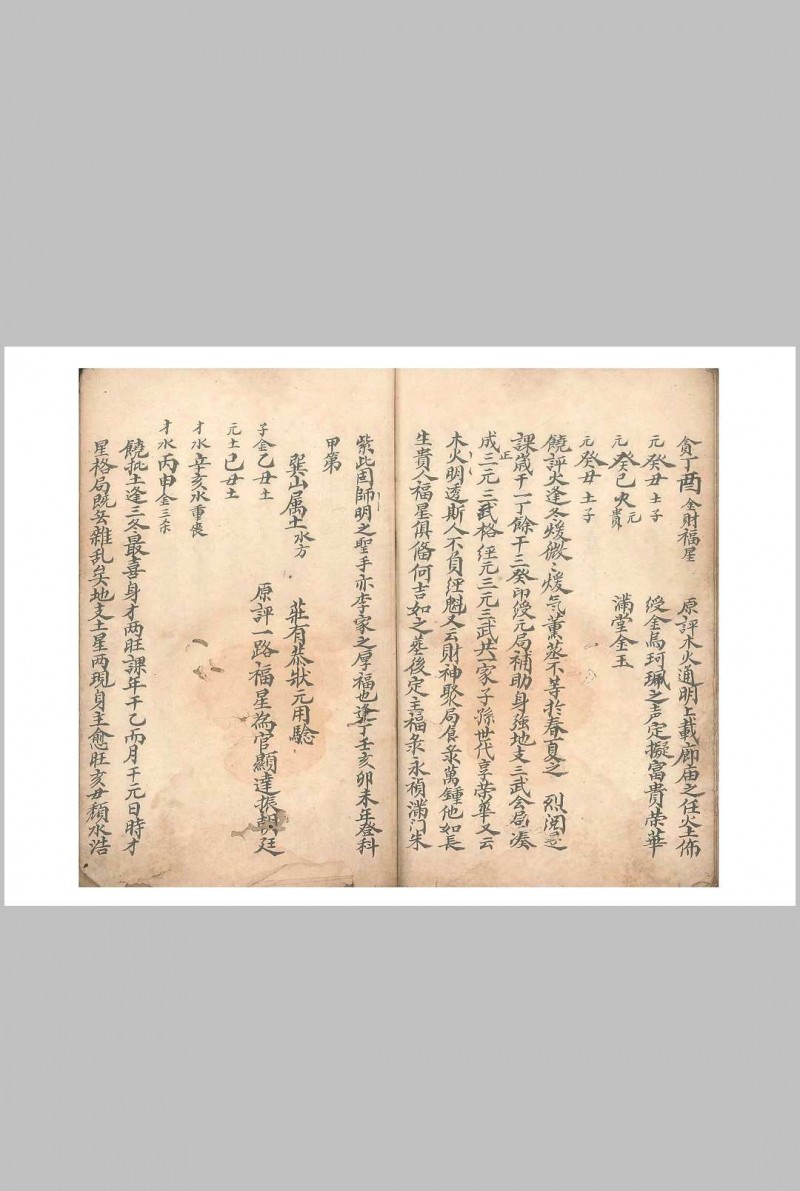 貪丁酉金財福星
元癸丑土子
元癸巳火元貴
元癸丑土子
原評木火通明上載廊庙之任火土佈
绶金烏珂珮之声定擬富貴荣華
滿堂金玉
饒評火逢冬煖微〻煖气薰蒸不等於春夏之 烈閱是
課歲干一丁餘干三癸印绶元局補助身強地支三武會局凑
成正三元三武格經元三元三武共一家子孫世代享荣華又云
木火明透斯人不負經魁又云財神聚局食彔萬鍾他如長
生貴人福星俱俻何吉如之塟後定主福彔永禎滿门朱
紫此固師明之聖手亦李家之厚福也逢丁壬亥卯未年登科
甲第
巽山属土水方
莊有恭狀元用騐
子金乙丑土
元土己丑土
才水辛亥水重喪
才水丙申金三杀
原評一路福星為官顯達振朝廷
饒批土逢三冬最喜身才两旺課年干乙而月干元日時才
星格局既無雜乱矣地支土星两現身主愈旺亥丑類水浩